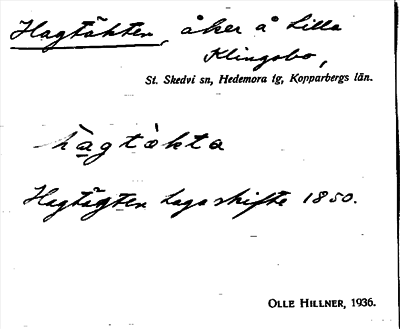 Hagtäkten, åker å Lilla
Klingsbo,
St. Skedvi sn, Hedemora tg, Kopparbergs län.
hàgtàkta
Hagtägten Laga skifte 1850.
OLLE HILLNER, 1936.